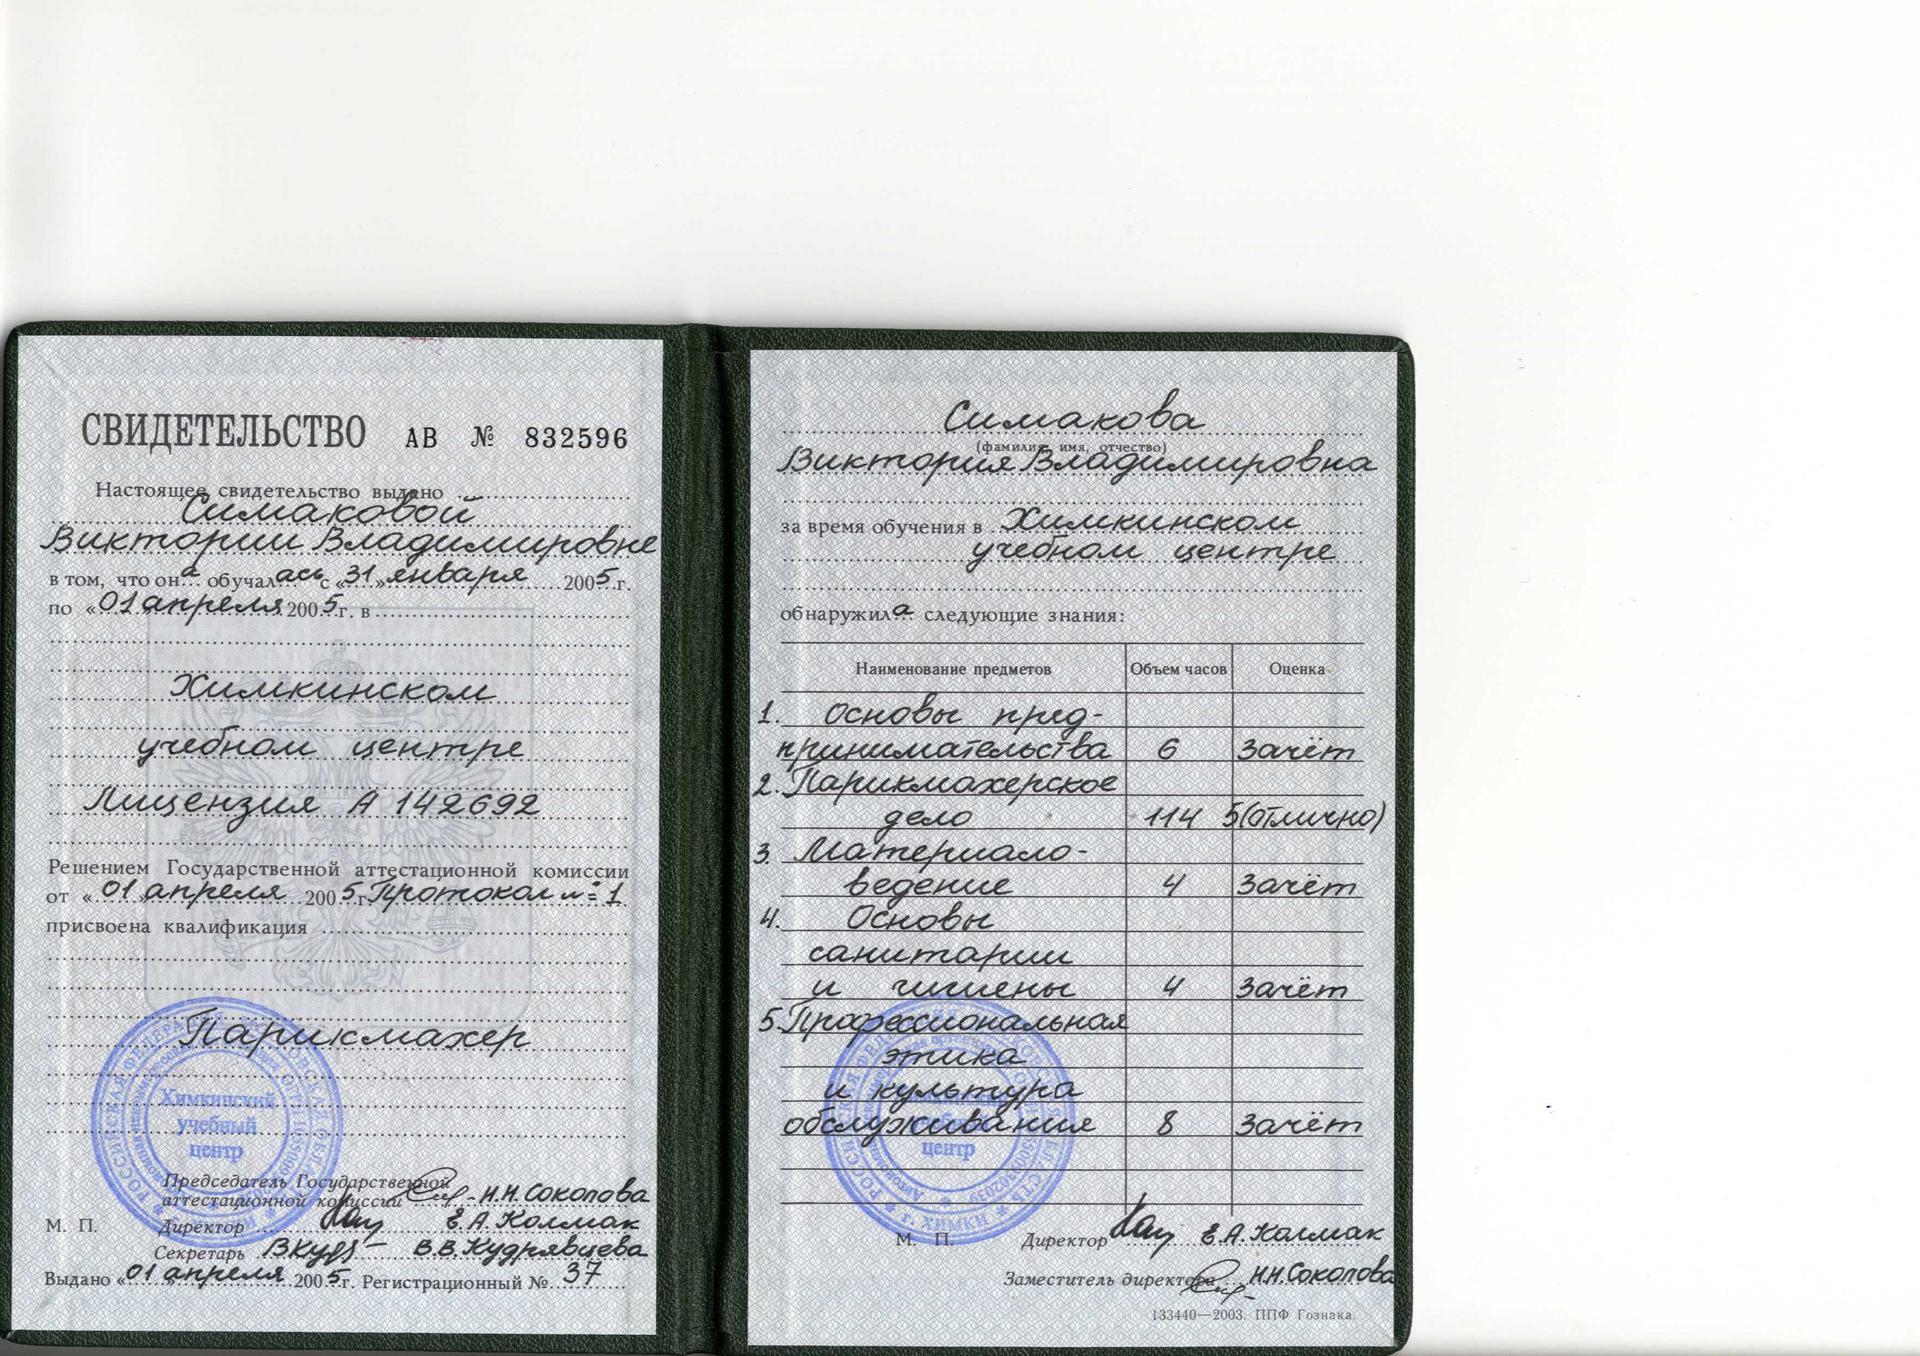 СВИДЕТЕЛЬСТВО АВ № 832596
Настоящее свидетельство выдано
Симаковой
Виктории Владимировне
в том, что она обучалась с «31» января 2005 г.
по «01 апреля 2005 г. в
Химкинском
учебном центре
Лицензия А 142692
Решением Государственной аттестационной комиссии
от «01 апреля 2005 г. Протокол № 1
присвоена квалификация
Парикмахер
Химкинский
учебный
центр
Председатель Государственной
аттестационной комиссии Н.Н. Соколова
М. П. Директор Е.А. Колмак
Секретарь В.В. Кудрявцева
Выдано «01 апреля 2005 г. Регистрационный № 37
Симакова
(фамилия, имя, отчество)
Виктория Владимировна
за время обучения в Химкинском
учебном центре
обнаружила следующие знания:
Наименование предметов Объем часов Оценка
1. Основы пред-
принимательства 6 Зачёт
2. Парикмахерское
дело 114 5(отлично)
3. Материало-
ведение 4 Зачёт
4. Основы
санитарии
и гигиены 4 Зачёт
5. Профессиональная
этика
и культура
обслуживания 8 Зачёт
центр
г. ХИМКИ
М. П. Директор Е.А. Колмак
Заместитель директора Н.Н. Соколова
133440—2003. ППФ Гознака.